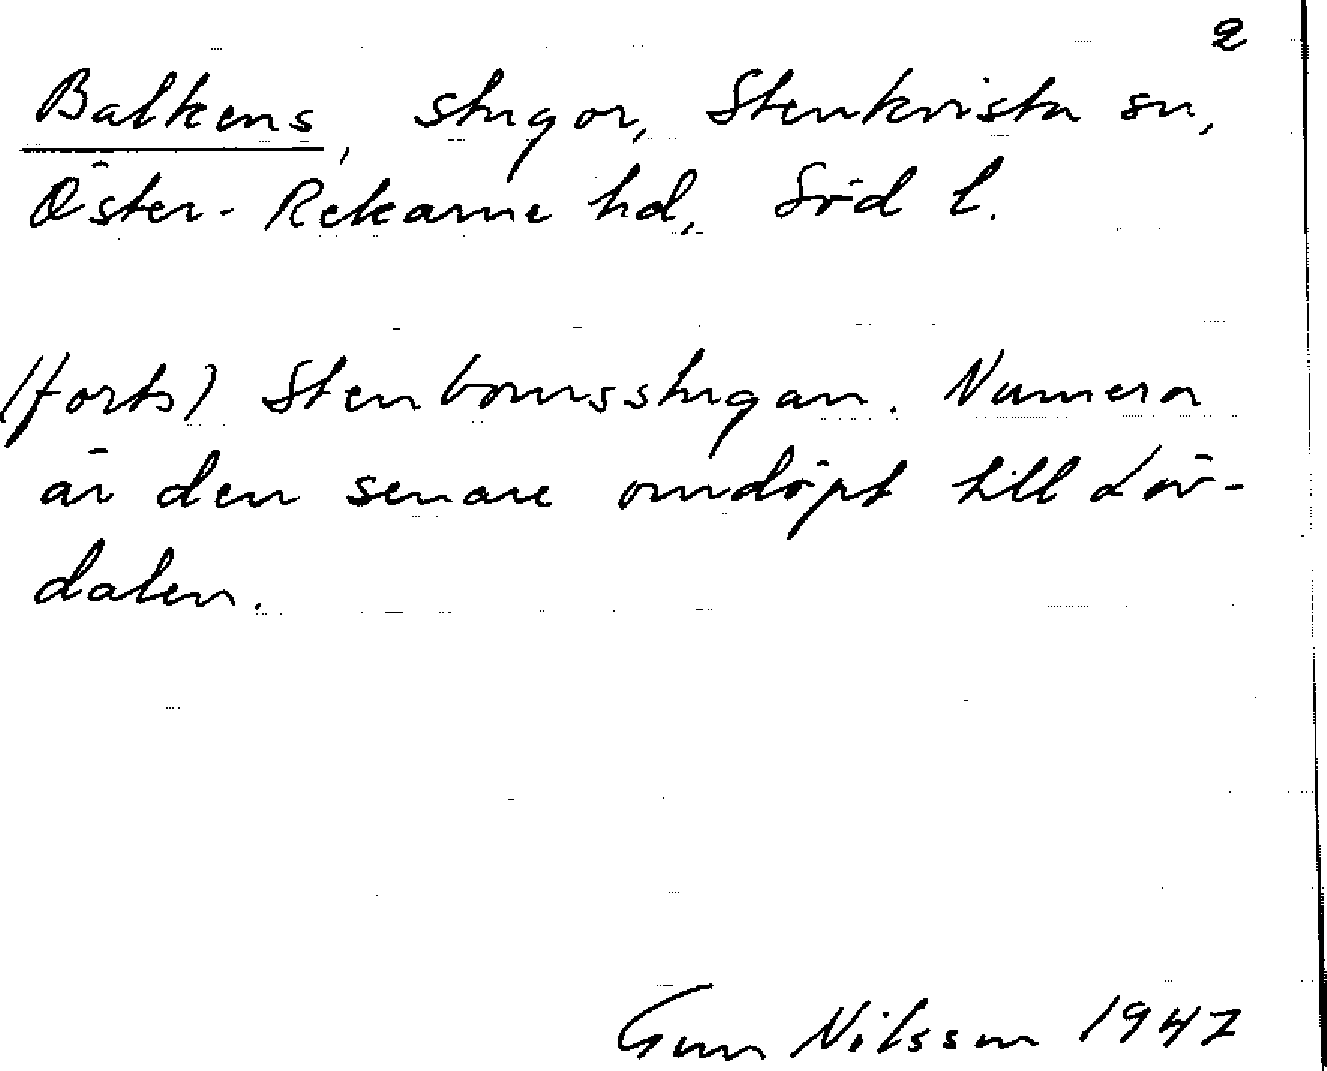 2
Balkens, stugor, Stenkvista sn,
Öster-Rekarne hd, Söd l.
(forts) Stenbomsstugan. Numera
är den senare omdöpt till Löv-
dalen.
Gun Nilsson 1947